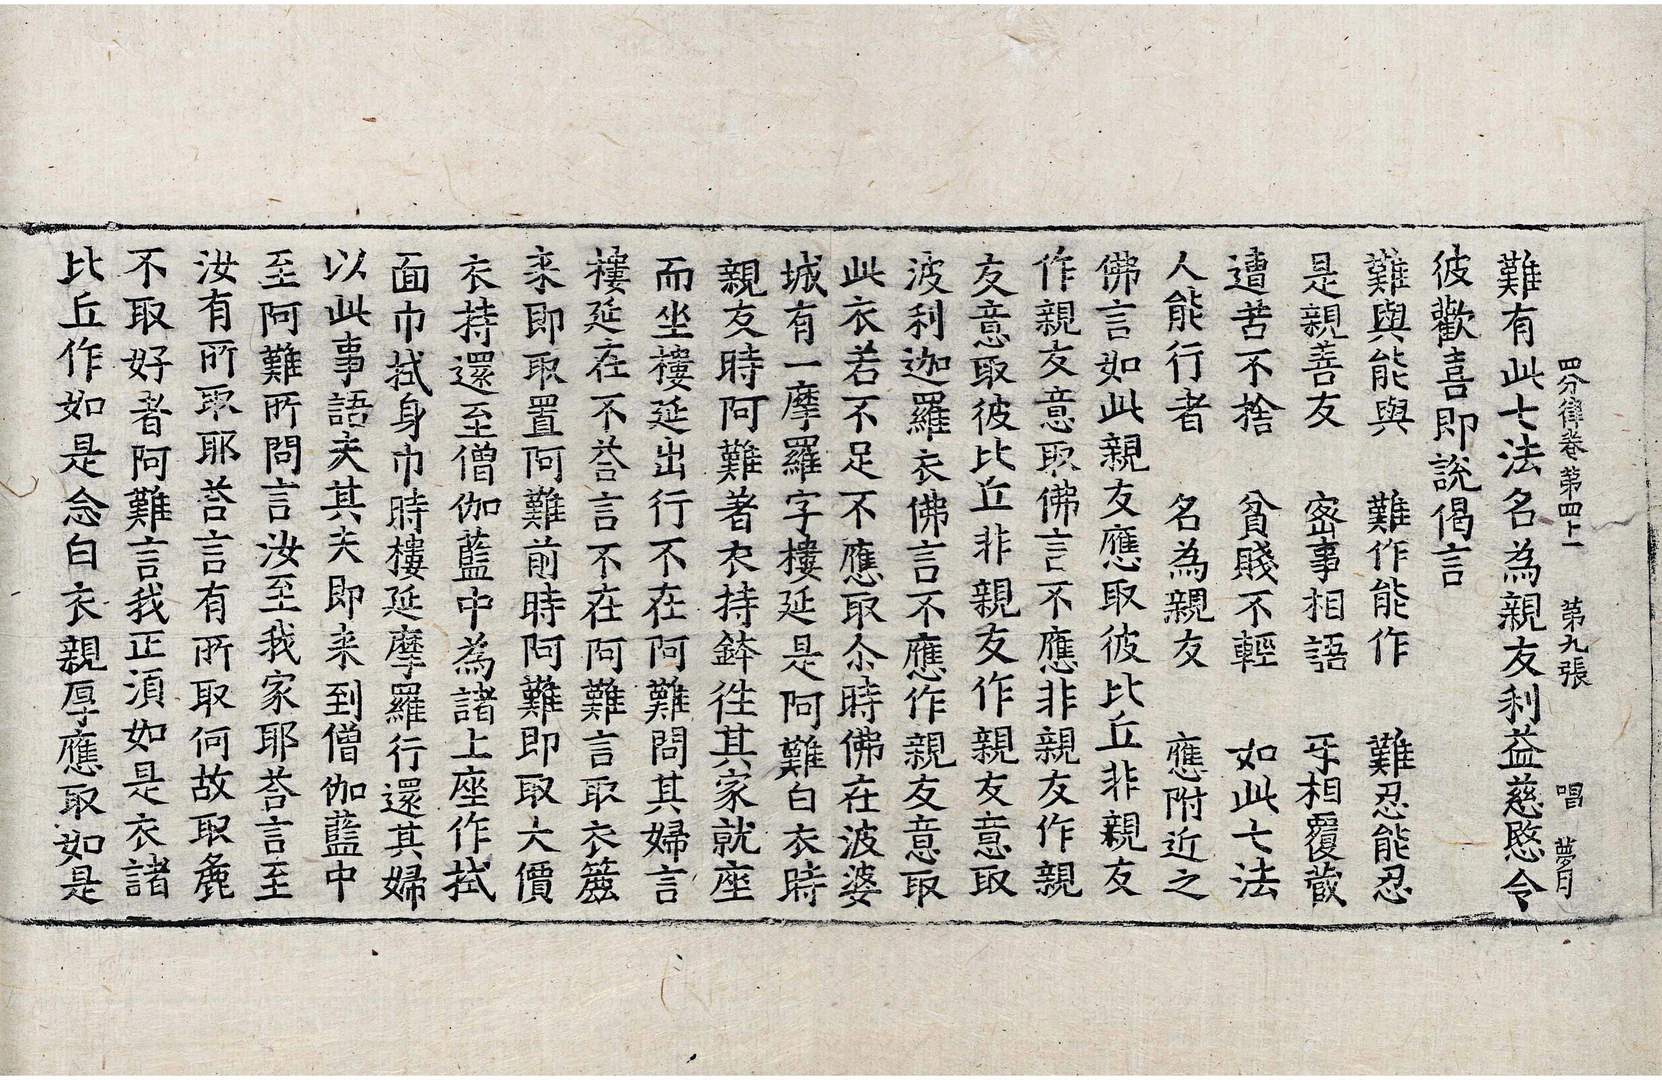 四分律卷第四十一 第九張 唱 夢月
難有此七法名為親友利益慈愍令
彼歡喜即說偈言
難與能與 難作能作 難忍能忍
是親善友 密事相語 互相覆藏
遭苦不捨 貧賤不輕 如此七法
人能行者 名為親友 應附近之
佛言如此親友應取彼比丘非親友
作親友意取佛言不應非親友作親
友意取彼比丘非親友作親友意取
波利迦羅衣佛言不應作親友意取
此衣若不足不應取尒時佛在波婆
城有一摩羅字樓延是阿難白衣時
親友時阿難著衣持鉢往其家就座
而坐樓延出行不在阿難問其婦言
樓延在不荅言不在阿難言取衣簏
来即取置阿難前時阿難即取大價
衣持還至僧伽藍中為諸上座作拭
面巾拭身巾時樓延摩羅行還其婦
以此事語夫其夫即来到僧伽藍中
至阿難所問言汝至我家耶荅言至
汝有所取耶荅言有所取何故取麁
不取好者阿難言我正須如是衣諸
比丘作如是念白衣親厚應取如是